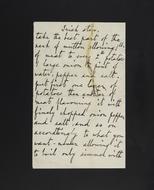 Irish Stew.
take the best part of the
neck of mutton allowing 1 lb
of meat to one lb potatoes
large onion to pint
water, pepper and salt.
put first one layer of
potatoes then another of
meat flavouring it with
finely chopped onion pepper
and salt and so on
according to what you
want - never allowing it
to boil only simmer with